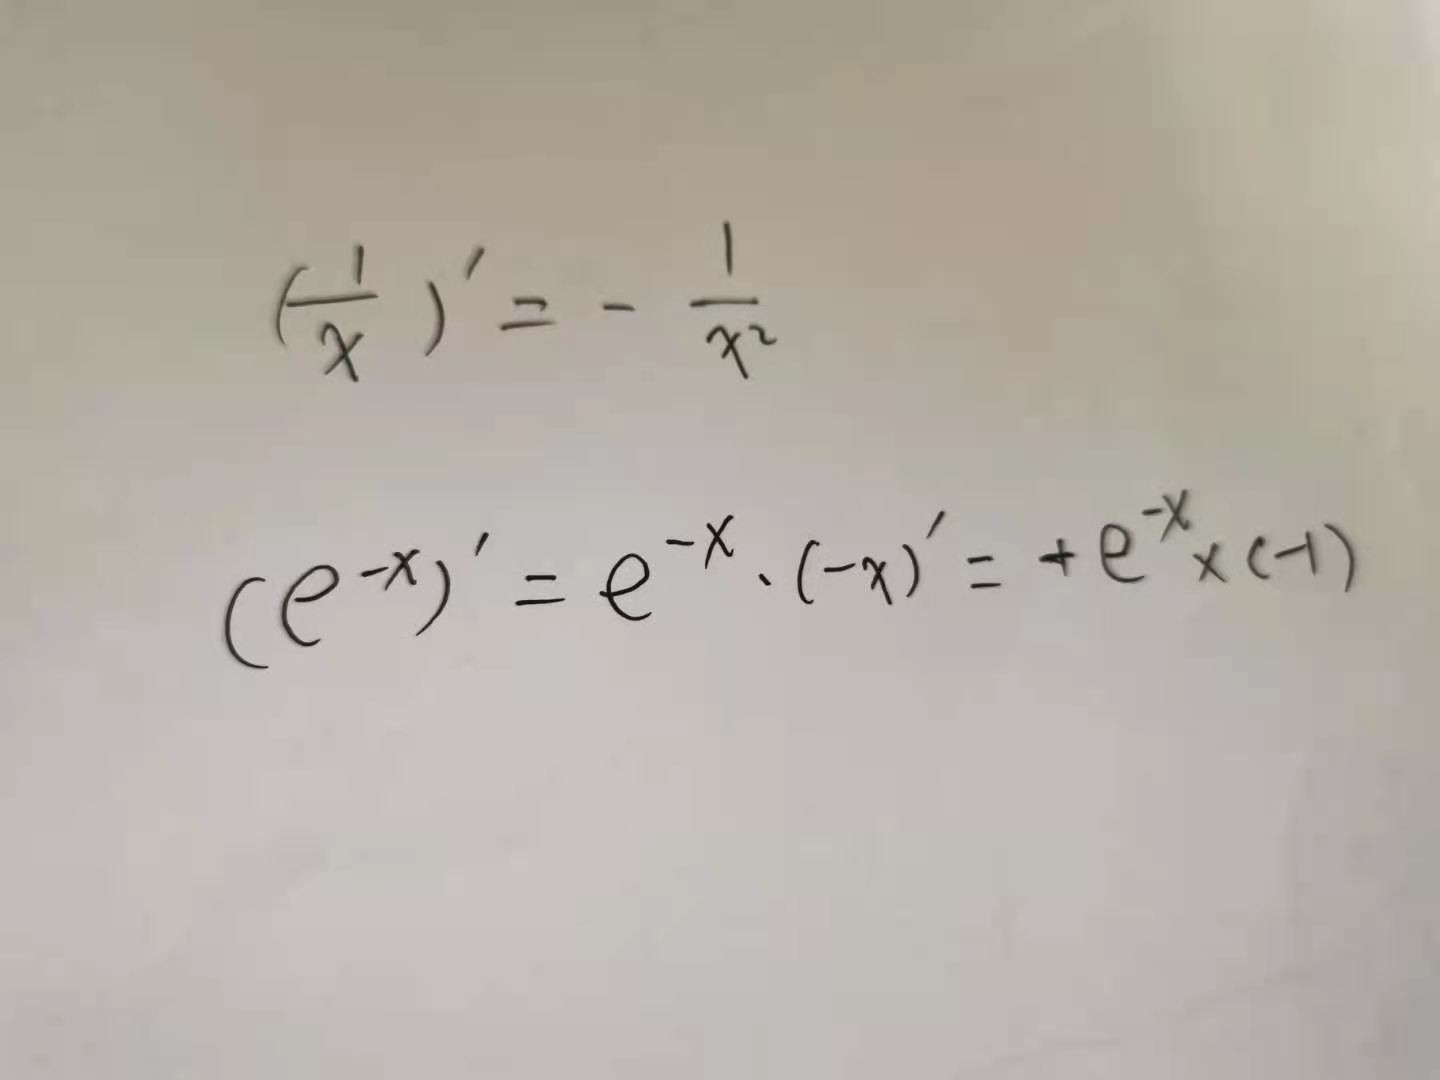 (1/x)' = - 1/x²
(e^{-x})' = e^{-x} · (-x)' = + e^{-x} × (-1)